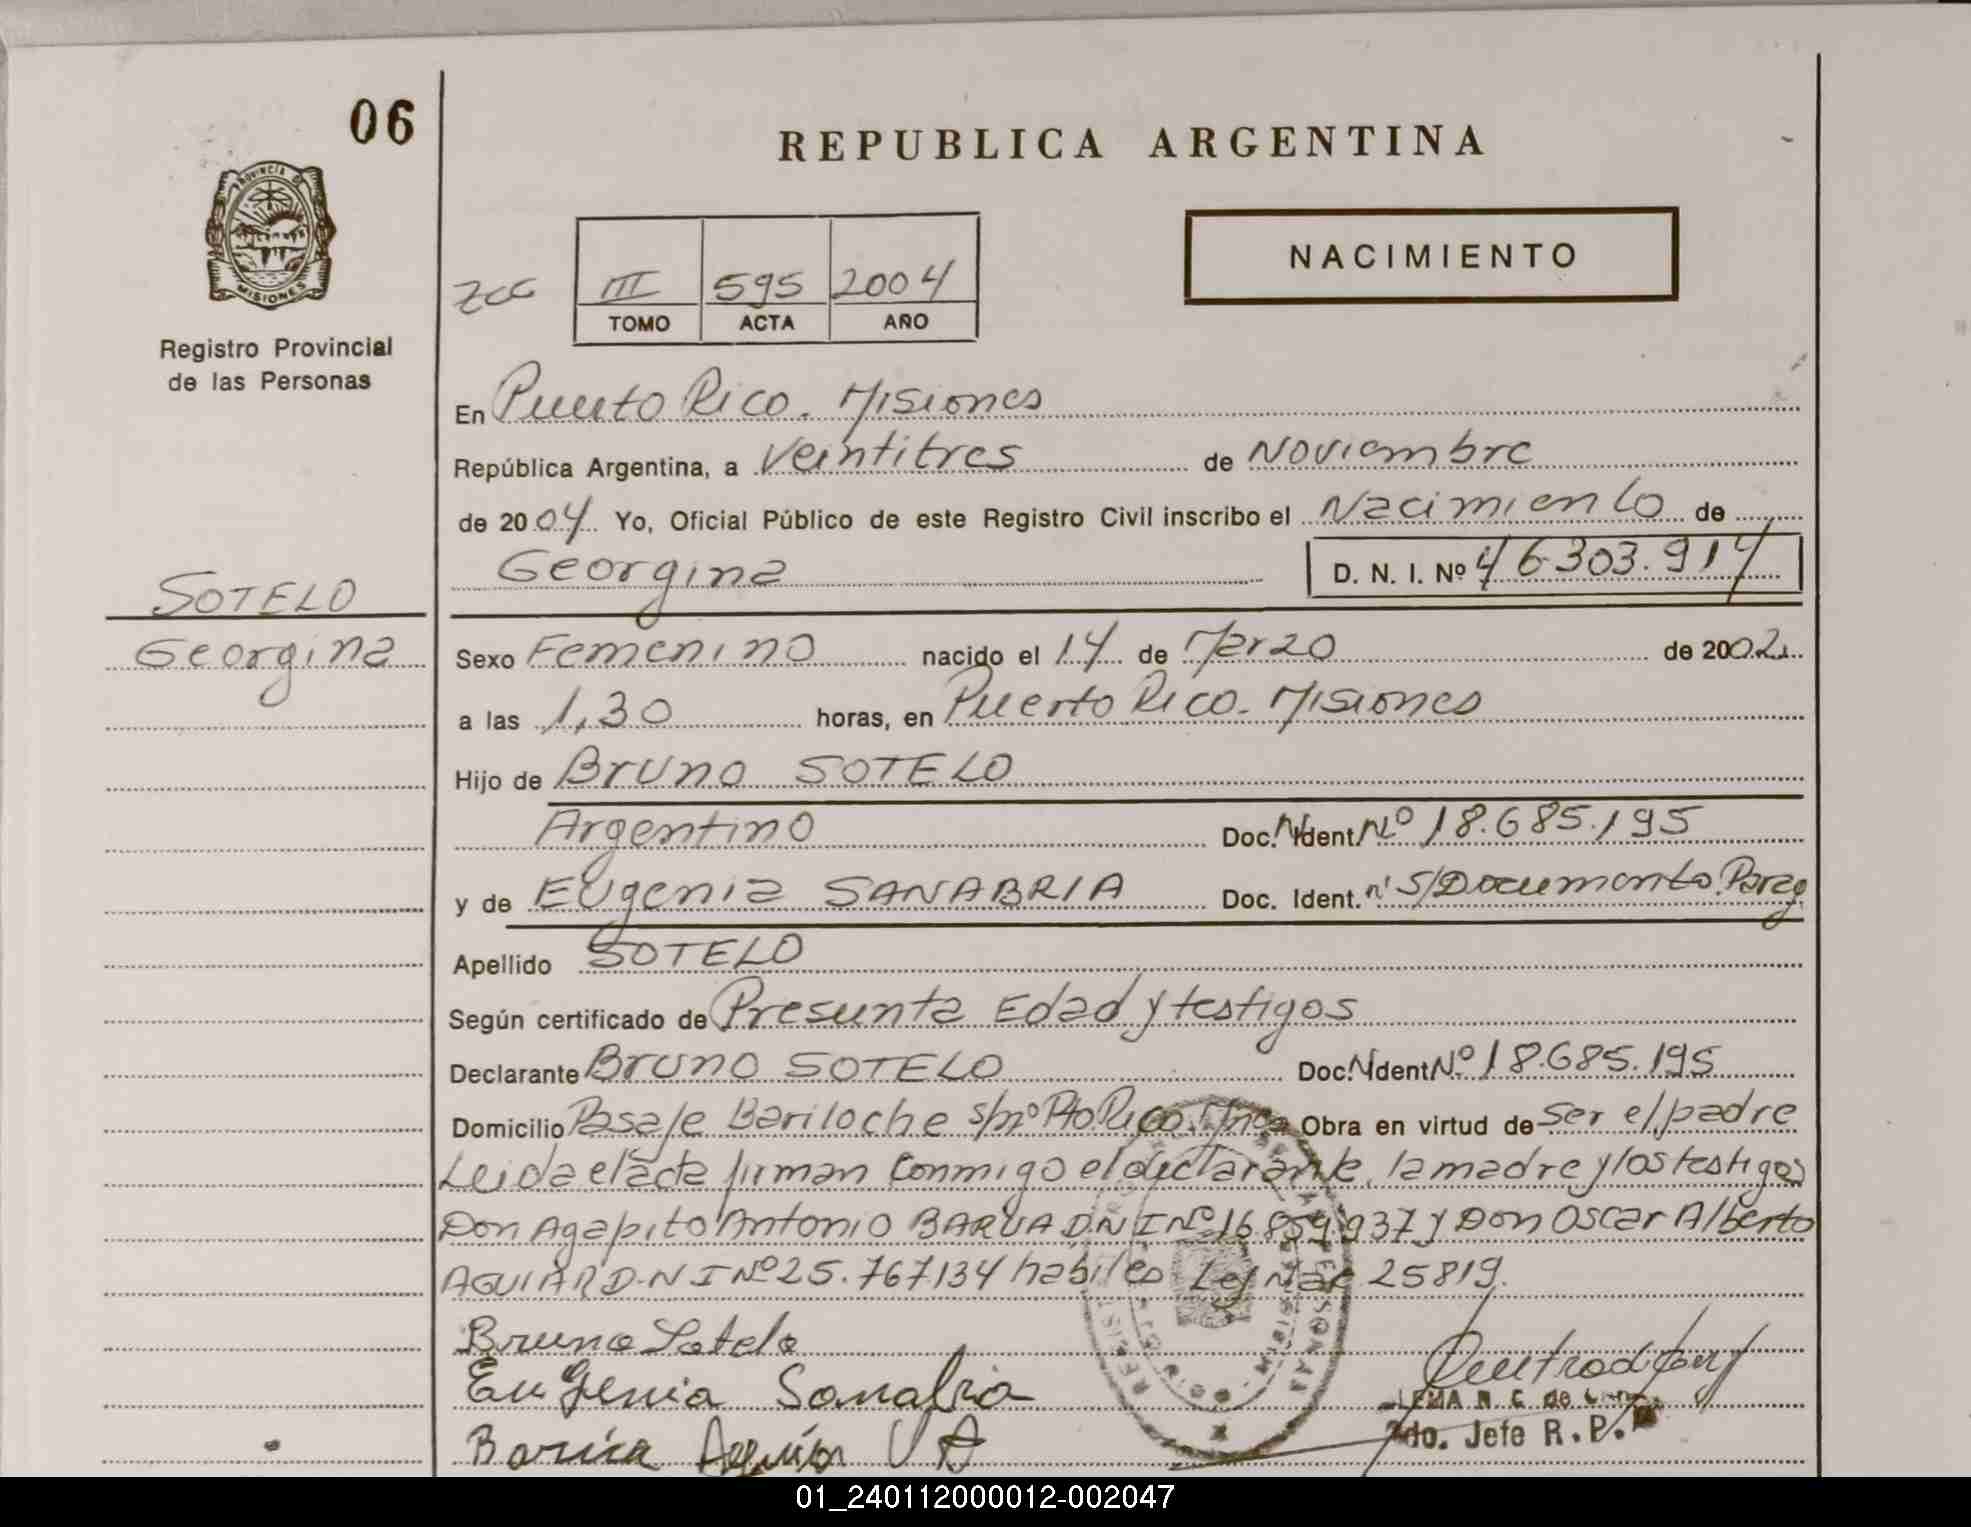 06
REPUBLICA ARGENTINA
PROVINCIA D
MISIONES
NACIMIENTO
III 595 2004
TOMO ACTA AÑO
Registro Provincial
de las Personas
En Puerto Rico. Misiones
República Argentina, a Veintitres de Noviembre
de 2004 Yo, Oficial Público de este Registro Civil inscribo el Nacimiento de
Georgina D. N. I. Nº 46.303.914
SOTELO
Georgina
Sexo Femenino nacido el 14 de Marzo de 2002
a las 1,30 horas, en Puerto Rico. Misiones
Hijo de Bruno SOTELO
Argentino Doc. Ident. Nº 18.685.195
y de Eugenia SANABRIA Doc. Ident. nº S/Documento Parag
Apellido SOTELO
Según certificado de Presunta Edad y testigos
Declarante Bruno SOTELO Doc. Ident Nº 18.685.195
Domicilio Pasaje Bariloche s/nº Pto. Rico. Mnes Obra en virtud de Ser el padre
Leida el acta firman conmigo el declarante, la madre y los testigos
Don Agapito Antonio BARUA D.N I Nº 16.859.937 y Don Oscar Alberto
AGUIAR D.N I Nº 25.767134 habiles Ley Nac 25819.
Bruno Sotelo
Eugenia Sanabria
2do. Jefe R.P.
01_240112000012-002047